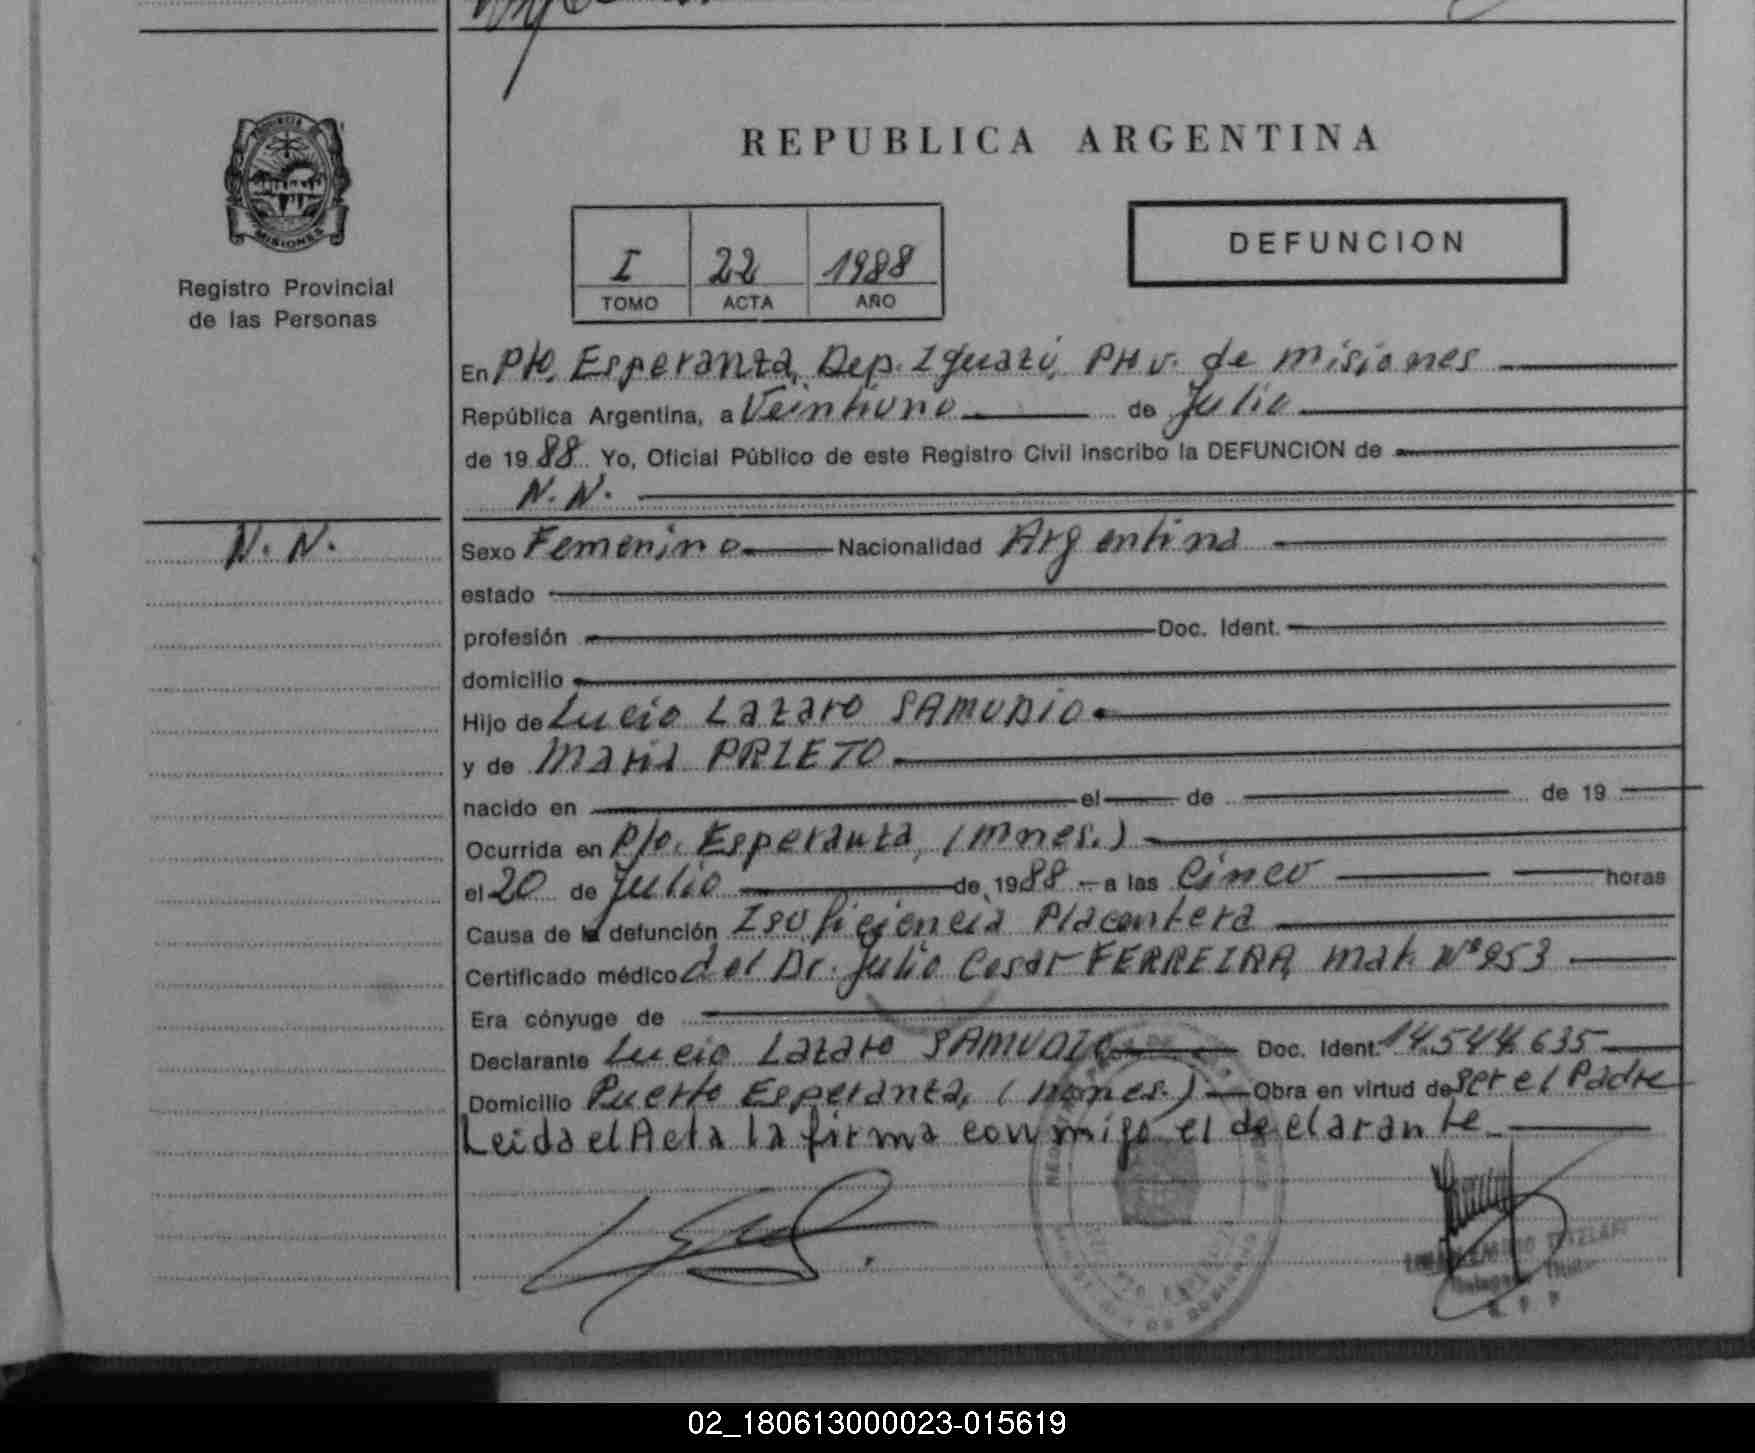 REPUBLICA ARGENTINA
PROVINCIA DE
MISIONES
Registro Provincial
de las Personas
I 22 1988
TOMO ACTA AÑO
DEFUNCION
En Pto. Esperanza, Dep. Iguazú, Prv. de misiones
República Argentina, a Veintiuno de Julio
de 1988 Yo, Oficial Público de este Registro Civil inscribo la DEFUNCION de
N. N.
N. N.
Sexo Femenino Nacionalidad Argentina
estado
profesión Doc. Ident.
domicilio
Hijo de Lucio Lazaro SAMUDIO
y de Maria PRIETO
nacido en el de de 19
Ocurrida en Pto. Esperanza, (mnes.)
el 20 de Julio de 1988 a las Cinco horas
Causa de la defunción Isuficiencia Placentera
Certificado médico del Dr. Julio Cesar FERREIRA mat. Nº 253
Era cónyuge de
Declarante Lucio Lazaro SAMUDIO Doc. Ident. 14.544.635
Domicilio Puerto Esperanza, (mnes.) Obra en virtud de ser el Padre
Leida el Acta la firma conmigo el declarante
02_180613000023-015619